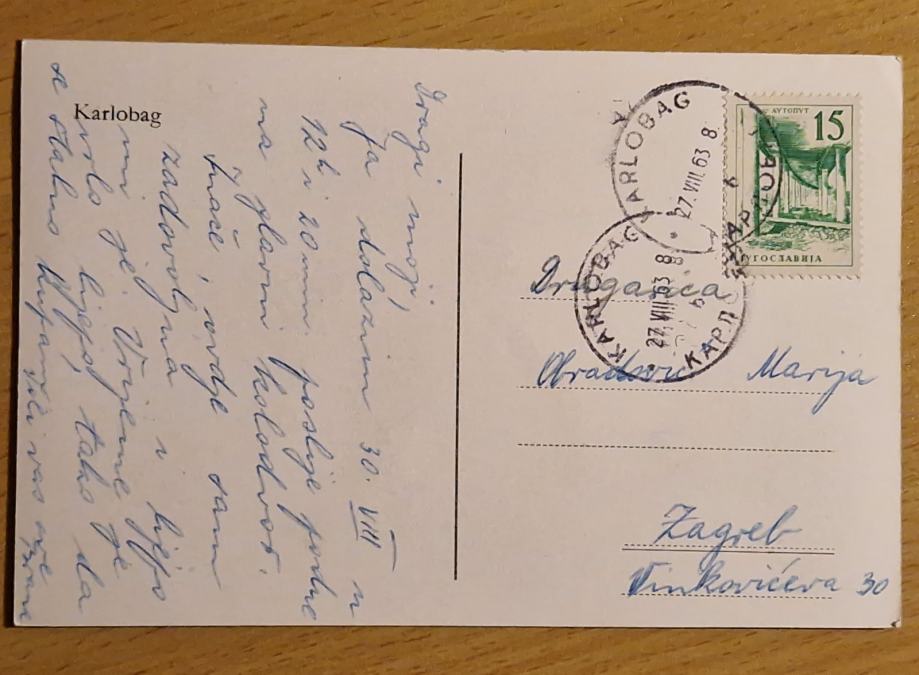 Karlobag
Dragi moji,
Ja dolazim 30. VIII u
12h i 20 min. poslije podne
na glavni kolodvor.
Inače, ovdje sam
zadovoljna i lijepo
mi je. Vrijeme je
vrlo lijepo, tako da
se stalno kupam.
Voli vas sve
KARLOBAG
27.VIII.63 8
КАРЛОБАГ
KARLOBAG
27.VIII.63 8
КАРЛ
АУТОПУТ
15
ЈУГОСЛАВИЈА
Drugarica
Obradović Marija
Zagreb
Vinkovićeva 30